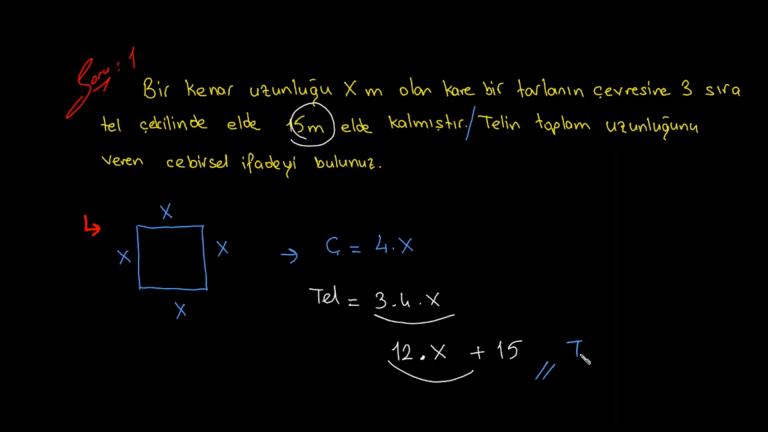 Soru: 1
Bir kenar uzunluğu X m olan kare bir tarlanın çevresine 3 sıra
tel çekilinde elde 15m elde kalmıştır. / Telin toplam uzunluğunu
veren cebirsel ifadeyi bulunuz.
X
X X
X
→ Ç = 4.X
Tel = 3.4.X
12.X + 15 // T